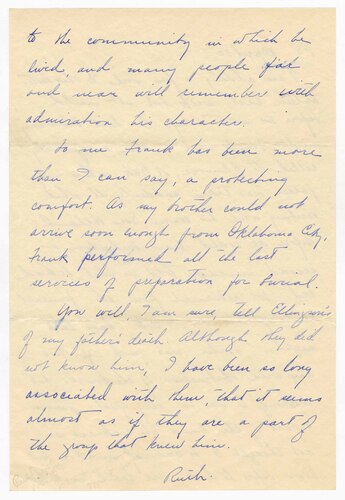 to the community in which he
lived, and many people far
and near will remember with
admiration his character.
To me Frank has been more
than I can say, a protecting
comfort. As my brother could not
arrive soon enough from Oklahoma City,
Frank performed all the last
services of preparation for burial.
You will, I am sure, tell Ellingson's
of my father's death. Although they did
not know him, I have been so long
associated with them, that it seems
almost as if they are a part of
the group that knew him.
Ruth.